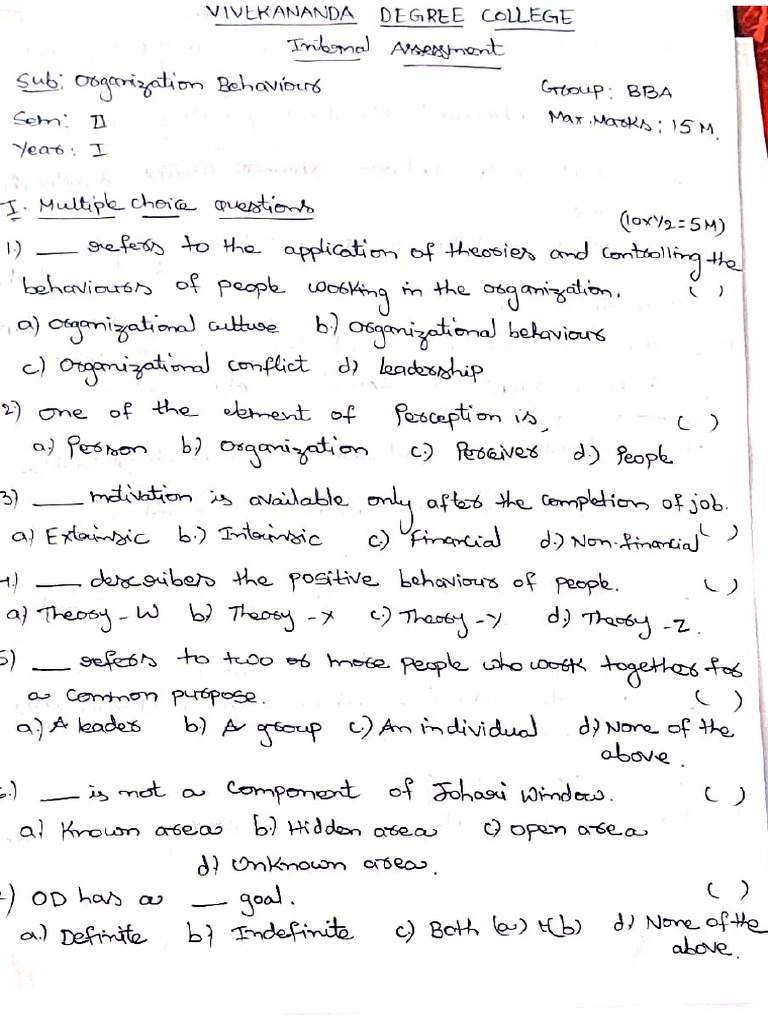 VIVEKANANDA DEGREE COLLEGE
Internal Assessment
Sub: Organization Behaviour
Group: BBA
Sem: II
Max. Marks: 15 M.
Year: I
I. Multiple choice questions
(10x1/2=5M)
1.) __ refers to the application of theories and controlling the
behaviours of people working in the organization. ( )
a) organizational culture b.) organizational behaviour
c.) organizational conflict d) leadership
2) one of the element of Perception is, ( )
a) Person b) organization c.) Perceiver d.) People
3) __ motivation is available only after the completion of job.
a) Extrinsic b.) Intrinsic c) Financial d.) Non-financial ( )
4.) __ describes the positive behaviour of people. ( )
a) Theory - W b) Theory - X c.) Theory - Y d.) Theory - Z.
5) __ refers to two or more people who work together for
a common purpose. ( )
a.) A leader b) A group c.) An individual d) None of the
above.
6.) __ is not a component of Johari Window. ( )
a) Known area b.) Hidden area c) open area
d) Unknown area.
7) OD has a __ goal. ( )
a.) Definite b) Indefinite c.) Both (a) & (b) d) None of the
above.